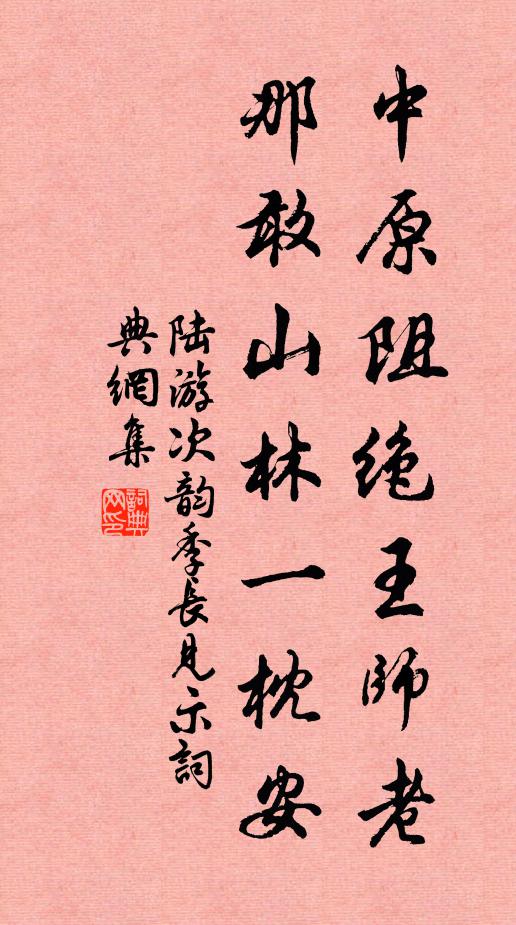 中原阻绝王師老
那敢山林一枕安
陆游次韵季長見示詞
典網集
詞典
网印